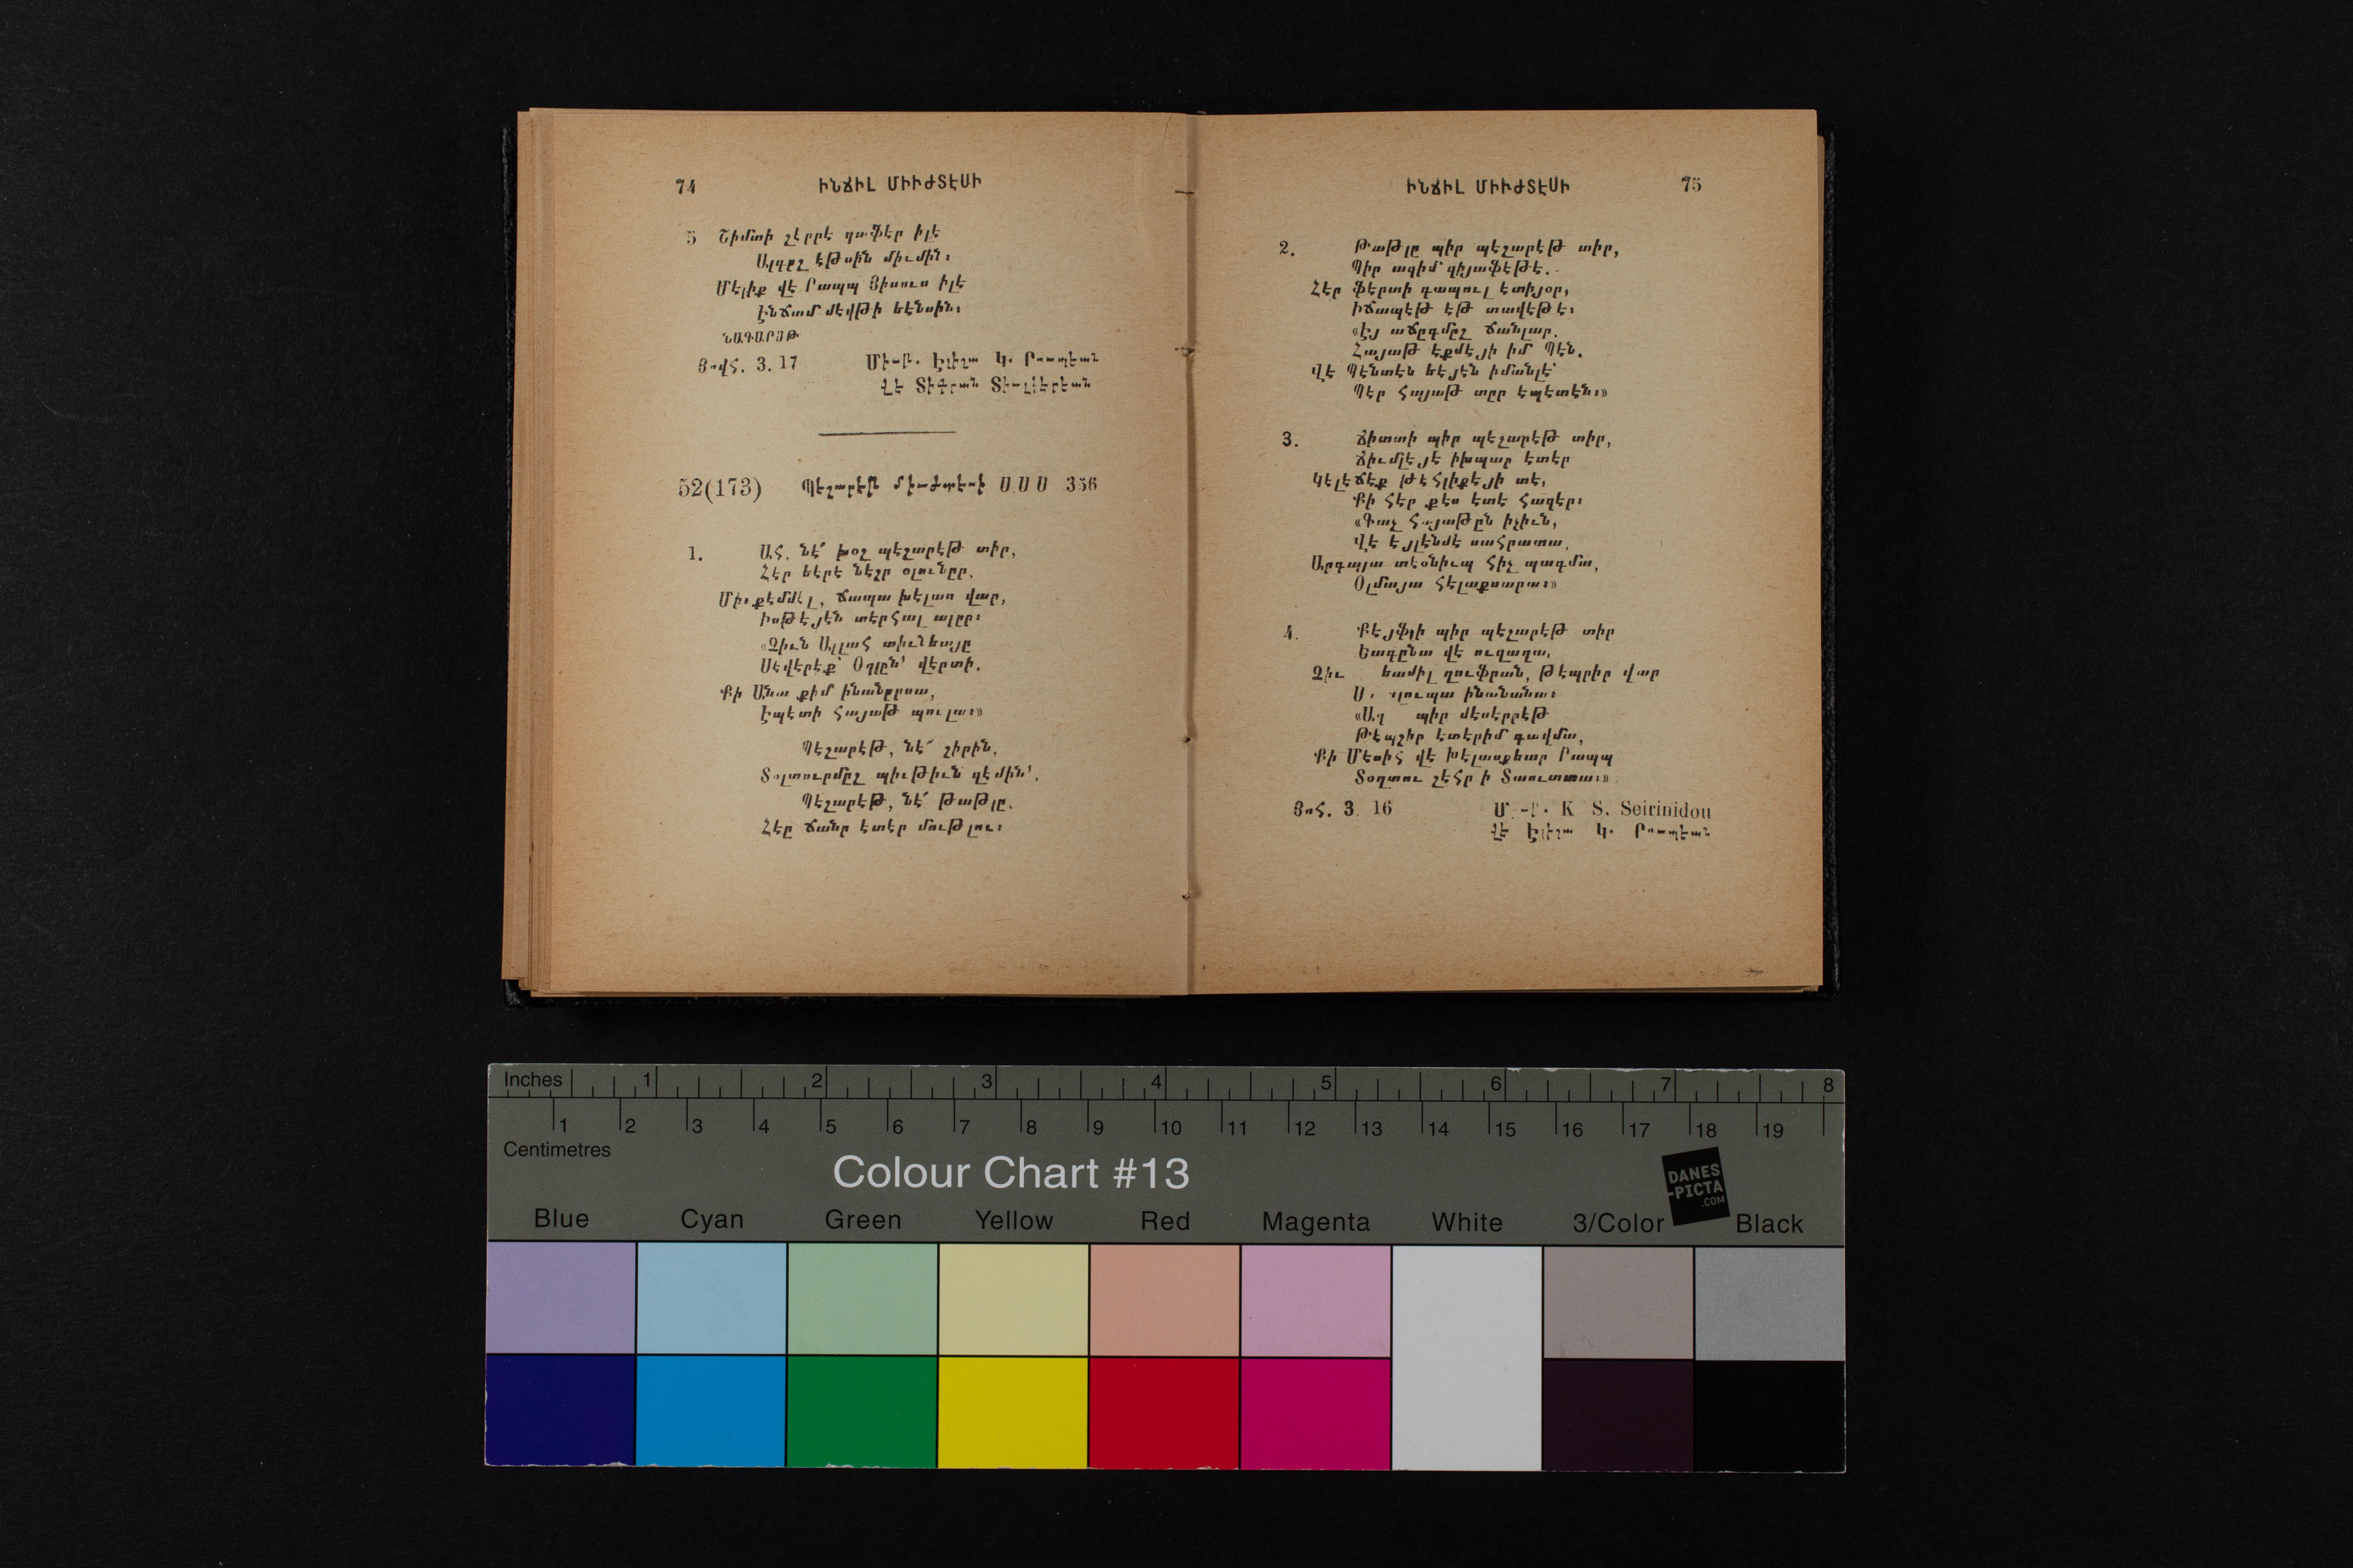 74 ԻՆՃԻԼ ՄԻՒԺՏԷՍԻ
5 Շիմտի չէրրէ զաֆէր իլէ
Ալգըշ էթսին միւմին։
Մէլիք վէ Րապպ Յիսուս իլէ
Էնճամ մէվթի եէնսին։
ՆԱԳԱՐԱԹ
Յովհ. 3. 17 Կ.
վէ Տիգրան
52(173) Պէշարէթ միւժտէսի Ս Ս Ս 356
1. Ահ, նէ՛ խօշ պէշարէթ տիր,
Հէր եէրէ նէշր օլունըր.
Միւքէմմէլ, ճապա խելաս վար,
Իսթէյէն տէրհալ ալըր։
«Զիւն Ալլահ տիւնեայը
Սէվէրէք՝ Օղլըն՝ վէրտի.
Քի Անա քիմ ինանըրսա,
Էպէտի հայաթ պուլա։»
Պէշարէթ, նէ՛ շիրին.
Տօլտուրմըշ պիւթիւն զէմին՝.
Պէշարէթ, նէ՛ թաթլը.
Հէր ճանը էտէր մութլու։
ԻՆՃԻԼ ՄԻՒԺՏԷՍԻ 75
2. Թաթլը պիր պէշարէթ տիր,
Պիր ազիմ զիյաֆէթէ.
Հէր ֆէրտի գապուլ էտիյօր,
Իճապէթ էթ տավէթէ։
«Էյ աճըգմըշ ճանլար.
Հայաթ էքմէյի իմ Պէն.
Վէ Պէնտէն եէյէն իմանլէ՝
Պէր հայաթ տըր էպէտէն։»
3. Ճիտտի պիր պէշարէթ տիր,
Ճիւմլէյէ իխպար էտէր
Կէլէճէք թէհլիքէյի տէ,
Քի հէր քէս էտէ հազէր։
«Գաչ հայաթըն իչիւն,
Վէ էյլէնմէ սահրատա.
Արգայա տէօնիւպ հիչ պագմա,
Օլմայա հէլաքսարա։»
4. Քէյֆլի պիր պէշարէթ տիր
Եագընա վէ ուզաղա.
Զիւ եամիլ ղուֆրան, թէպրիր վար
ինանանա։
պիր մէսէրրէթ
Թէպշիր էտէրիմ գավմա,
Քի Մէսիհ վէ խէլասքեար Րապպ
Տօղտու շէհր ի Տաուտտա։»
Յոհ. 3. 16 K S. Seirinidou
վէ Կ.
Inches 1 2 3 4 5 6 7 8
1 2 3 4 5 6 7 8 9 10 11 12 13 14 15 16 17 18 19
Centimetres
Colour Chart #13
DANES
-PICTA
.COM
Blue Cyan Green Yellow Red Magenta White 3/Color Black